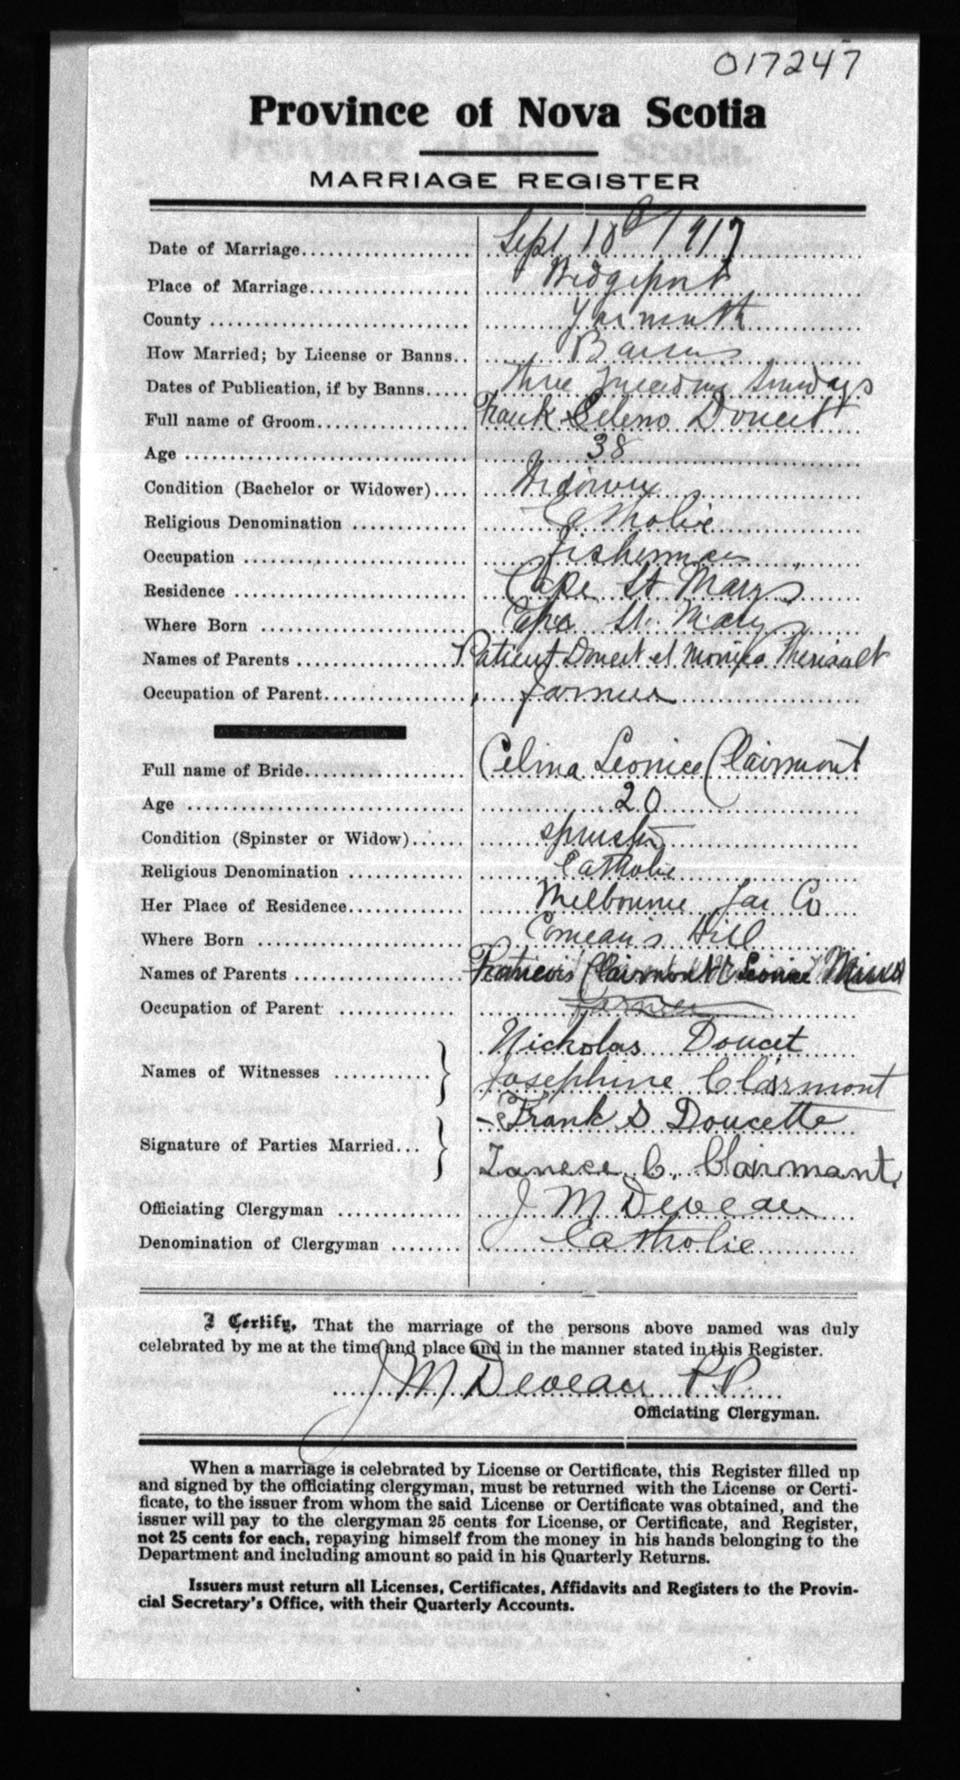 017247
Province of Nova Scotia
MARRIAGE REGISTER
Date of Marriage.................... Sept 18th 1917
Place of Marriage.................. Wedgeport
County ............................. Yarmouth
How Married; by License or Banns.. Banns
Dates of Publication, if by Banns..... three preceding Sundays
Full name of Groom................. Frank Celeno Doucet
Age ................................ 38
Condition (Bachelor or Widower).... Widower
Religious Denomination ............. Catholic
Occupation ......................... fisherman
Residence .......................... Cape St Marys
Where Born ........................ Cape St. Marys
Names of Parents .................. Patient Doucet et Monica Theriault
Occupation of Parent................ farmer
Full name of Bride.................. Celina Leonice Clairmont
Age ................................ 20
Condition (Spinster or Widow)....... spinster
Religious Denomination ............. Catholic
Her Place of Residence.............. Melbourne Yar Co
Where Born ........................ Comeau's Hill
Names of Parents .................. Francois Clairmont et Leonice
Occupation of Parent .............. farmer
Names of Witnesses ........... } Nicholas Doucet
Josephine Clairmont
Signature of Parties Married... } Frank S Doucette
C. Clairmant
Officiating Clergyman ............. J M Deveau
Denomination of Clergyman ........ Catholic
I Certify, That the marriage of the persons above named was duly
celebrated by me at the time and place and in the manner stated in this Register.
J M Deveau P.P.
Officiating Clergyman.
When a marriage is celebrated by License or Certificate, this Register filled up
and signed by the officiating clergyman, must be returned with the License or Certi-
ficate, to the issuer from whom the said License or Certificate was obtained, and the
issuer will pay to the clergyman 25 cents for License, or Certificate, and Register,
not 25 cents for each, repaying himself from the money in his hands belonging to the
Department and including amount so paid in his Quarterly Returns.
Issuers must return all Licenses, Certificates, Affidavits and Registers to the Provin-
cial Secretary's Office, with their Quarterly Accounts.